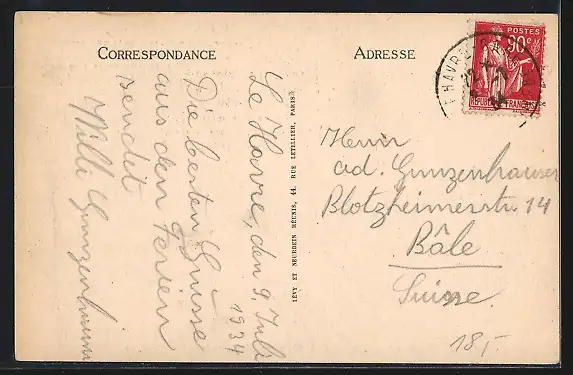 CORRESPONDANCE
ADRESSE
POSTES
90c
RÉPUBLIQUE FRANÇAISE
LE HAVRE
Le Havre, den 9. Juli
1934
Die besten Grüsse
aus den Ferien
sendet
Willi Gunzenhauser
LÉVY ET NEURDEIN RÉUNIS, 44, RUE LETELLIER, PARIS
Herrn
Ad. Gunzenhauser
Blotzheimerstr. 14
Bâle
Suisse
18,-